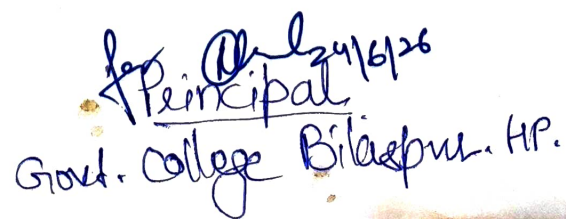 for 24/6/26
Principal
Govt. College Bilaspur. HP.